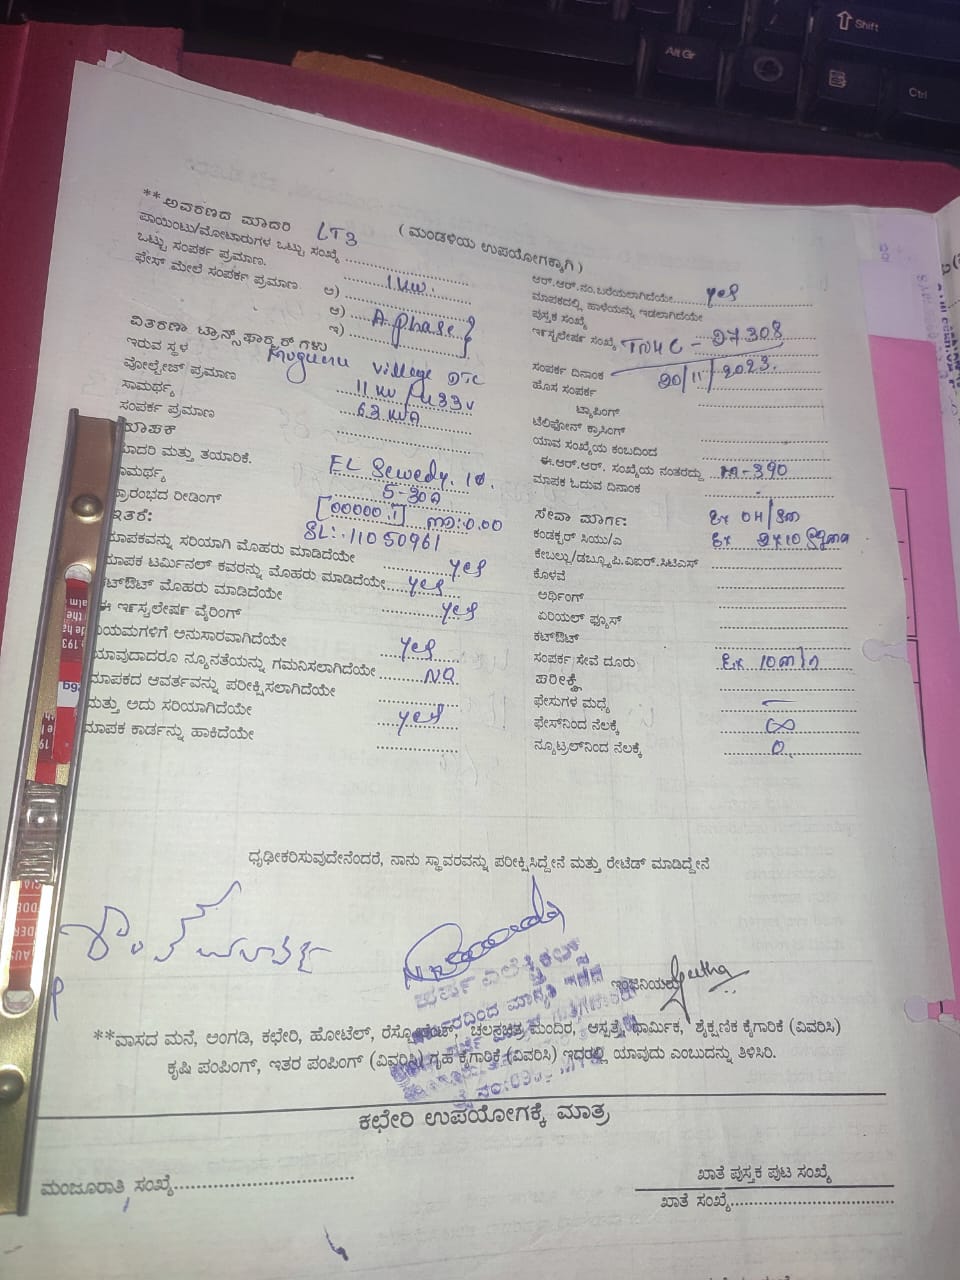 Shift
Alt Gr
Ctrl
**ಅವರಣದ ಮಾದರಿ LT3
(ಮಂಡಳಿಯ ಉಪಯೋಗಕ್ಕಾಗಿ)
ಪಾಯಿಂಟು/ಮೋಟಾರುಗಳ ಒಟ್ಟು ಸಂಖ್ಯೆ
ಒಟ್ಟು ಸಂಪರ್ಕ ಪ್ರಮಾಣ. 1KW.
ಫೇಸ್ ಮೇಲೆ ಸಂಪರ್ಕ ಪ್ರಮಾಣ ಅ)
ಆ) A phase
ಇ)
ವಿತರಣಾ ಟ್ರಾನ್ಸ್‌ಫಾರ್ಮರ್‌ಗಳು
ಇರುವ ಸ್ಥಳ Mugueru Village DTC
ವೋಲ್ಟೇಜ್ ಪ್ರಮಾಣ 11 KV / 433V
ಸಾಮರ್ಥ್ಯ 63 KVA
ಸಂಪರ್ಕ ಪ್ರಮಾಣ
ಮಾಪಕ
ಮಾದರಿ ಮತ್ತು ತಯಾರಿಕೆ. EL Sewedy. 1Ø.
ಸಾಮರ್ಥ್ಯ 5-30A
ಪ್ರಾರಂಭದ ರೀಡಿಂಗ್ [00000.1]
ಇತರೆ: SL: 11050961
ಮಾಪಕವನ್ನು ಸರಿಯಾಗಿ ಮೊಹರು ಮಾಡಿದೆಯೇ yes
ಮಾಪಕ ಟರ್ಮಿನಲ್ ಕವರನ್ನು ಮೊಹರು ಮಾಡಿದೆಯೇ yes
ಕಟ್‌ಔಟ್ ಮೊಹರು ಮಾಡಿದೆಯೇ yes
ಈ ಇನ್‌ಸ್ಟಲೇಷನ್ ವೈರಿಂಗ್
ನಿಯಮಗಳಿಗೆ ಅನುಸಾರವಾಗಿದೆಯೇ yes
ಯಾವುದಾದರೂ ನ್ಯೂನತೆಯನ್ನು ಗಮನಿಸಲಾಗಿದೆಯೇ NA
ಮಾಪಕದ ಆವರ್ತವನ್ನು ಪರೀಕ್ಷಿಸಲಾಗಿದೆಯೇ
ಮತ್ತು ಅದು ಸರಿಯಾಗಿದೆಯೇ yes
ಮಾಪಕ ಕಾರ್ಡನ್ನು ಹಾಕಿದೆಯೇ
ಆರ್.ಆರ್.ನಂ.ಬರೆಯಲಾಗಿದೆಯೇ yes
ಮಾಪಕದಲ್ಲಿ ಹಾಳೆಯನ್ನು ಇಡಲಾಗಿದೆಯೇ
ಪುಸ್ತಕ ಸಂಖ್ಯೆ
ಇನ್‌ಸ್ಟಲೇಷನ್ ಸಂಖ್ಯೆ TNHC - 27308
ಸಂಪರ್ಕ ದಿನಾಂಕ 20/11/2023.
ಹೊಸ ಸಂಪರ್ಕ
ಟ್ಯಾಪಿಂಗ್
ಟೆಲಿಫೋನ್ ಕ್ರಾಸಿಂಗ್
ಯಾವ ಸಂಖ್ಯೆಯ ಕಂಬದಿಂದ
ಈ.ಆರ್.ಆರ್. ಸಂಖ್ಯೆಯ ನಂತರದ್ದು
ಮಾಪಕ ಓದುವ ದಿನಾಂಕ
ಸೇವಾ ಮಾರ್ಗ: Ex OH/
ಕಂಡಕ್ಟರ್ ಸಿಯು/ಎ Ex 2x10
ಕೇಬಲ್ಲು/ಡಬ್ಲ್ಯೂ.ಪಿ.ಎಐರ್.ಸಿಟಿಎಸ್
ಕೊಳವೆ
ಅರ್ಥಿಂಗ್
ಏರಿಯಲ್ ಫ್ಯೂಸ್
ಕಟ್‌ಔಟ್
ಸಂಪರ್ಕ ಸೇವೆ ದೂರು Ex
ಪರೀಕ್ಷೆ
ಫೇಸುಗಳ ಮಧ್ಯೆ —
ಫೇಸ್‌ನಿಂದ ನೆಲಕ್ಕೆ ∞
ನ್ಯೂಟ್ರಲ್‌ನಿಂದ ನೆಲಕ್ಕೆ 0
ಧೃಢೀಕರಿಸುವುದೇನೆಂದರೆ, ನಾನು ಸ್ಥಾವರವನ್ನು ಪರೀಕ್ಷಿಸಿದ್ದೇನೆ ಮತ್ತು ರೇಟೆಡ್ ಮಾಡಿದ್ದೇನೆ
ಇಂಜಿನಿಯರು
**ವಾಸದ ಮನೆ, ಅಂಗಡಿ, ಕಛೇರಿ, ಹೋಟೆಲ್, ರೆಸ್ಟೋರೆಂಟ್, ಚಲನಚಿತ್ರ ಮಂದಿರ, ಆಸ್ಪತ್ರೆ, ಧಾರ್ಮಿಕ, ಶೈಕ್ಷಣಿಕ ಕೈಗಾರಿಕೆ (ವಿವರಿಸಿ)
ಕೃಷಿ ಪಂಪಿಂಗ್, ಇತರ ಪಂಪಿಂಗ್ (ವಿವರಿಸಿ) ಗೃಹ ಕೈಗಾರಿಕೆ (ವಿವರಿಸಿ) ಇದರಲ್ಲಿ ಯಾವುದು ಎಂಬುದನ್ನು ತಿಳಿಸಿರಿ.
ಕಛೇರಿ ಉಪಯೋಗಕ್ಕೆ ಮಾತ್ರ
ಮಂಜೂರಾತಿ ಸಂಖ್ಯೆ
ಖಾತೆ ಪುಸ್ತಕ ಪುಟ ಸಂಖ್ಯೆ
ಖಾತೆ ಸಂಖ್ಯೆ